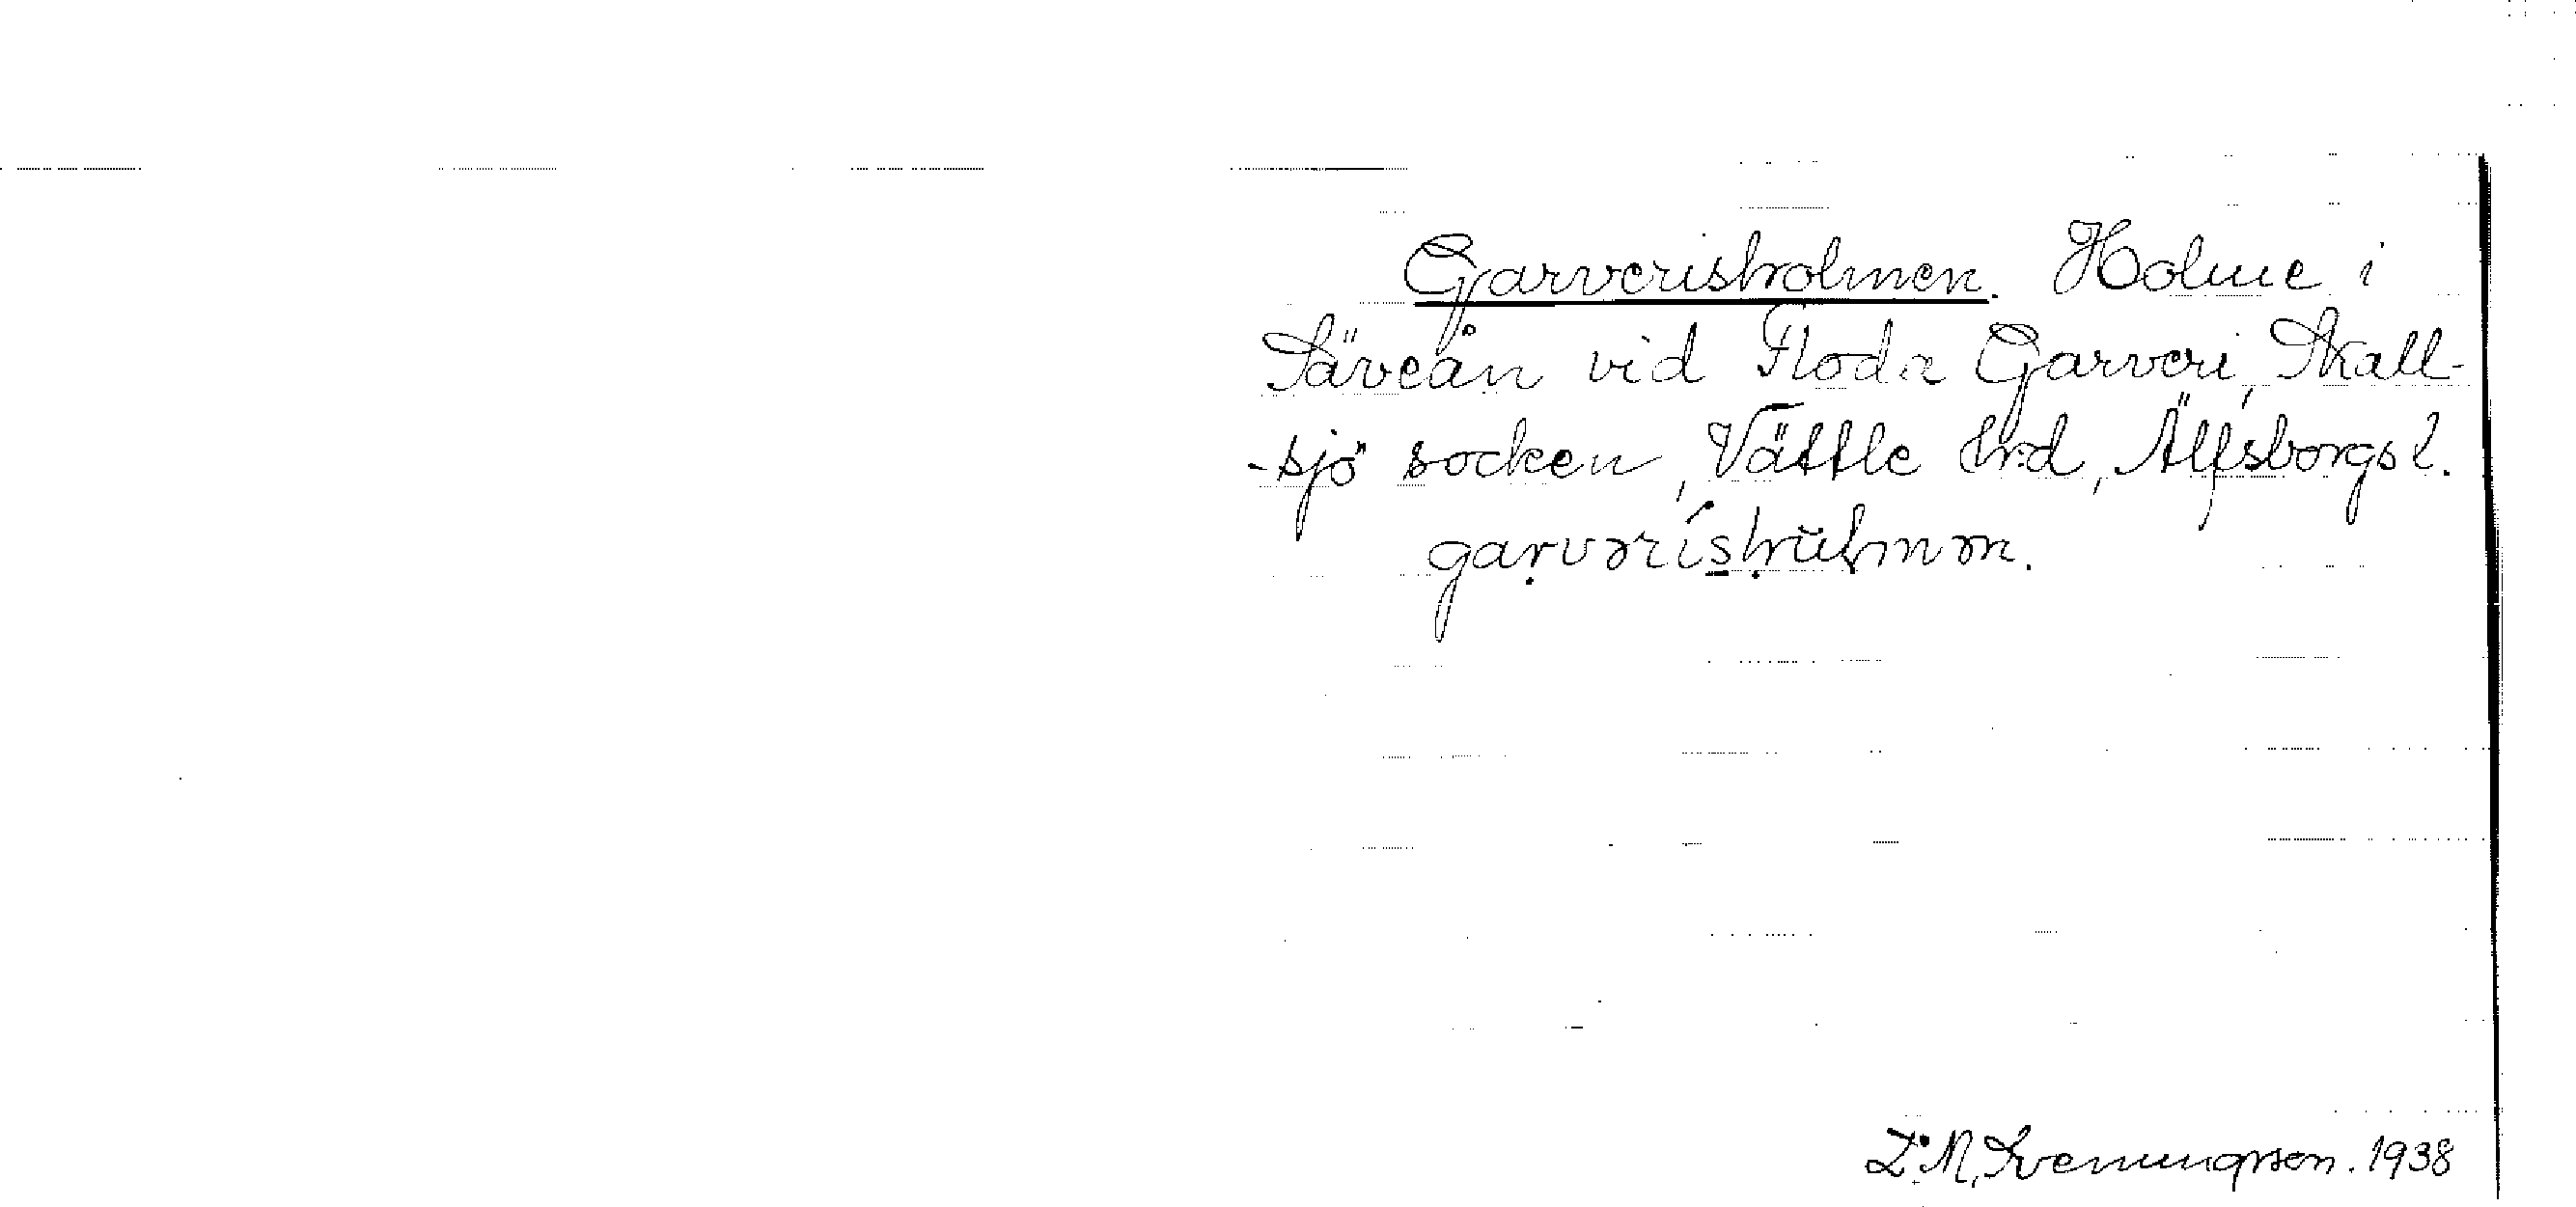 Garverisholmen. Holme i
Säveån vid Floda Garveri, Skall-
-sjö socken, Vättle hrd, Älfsborgs l.
garvərishu̇lmən.
L. M. Svenungsson. 1938